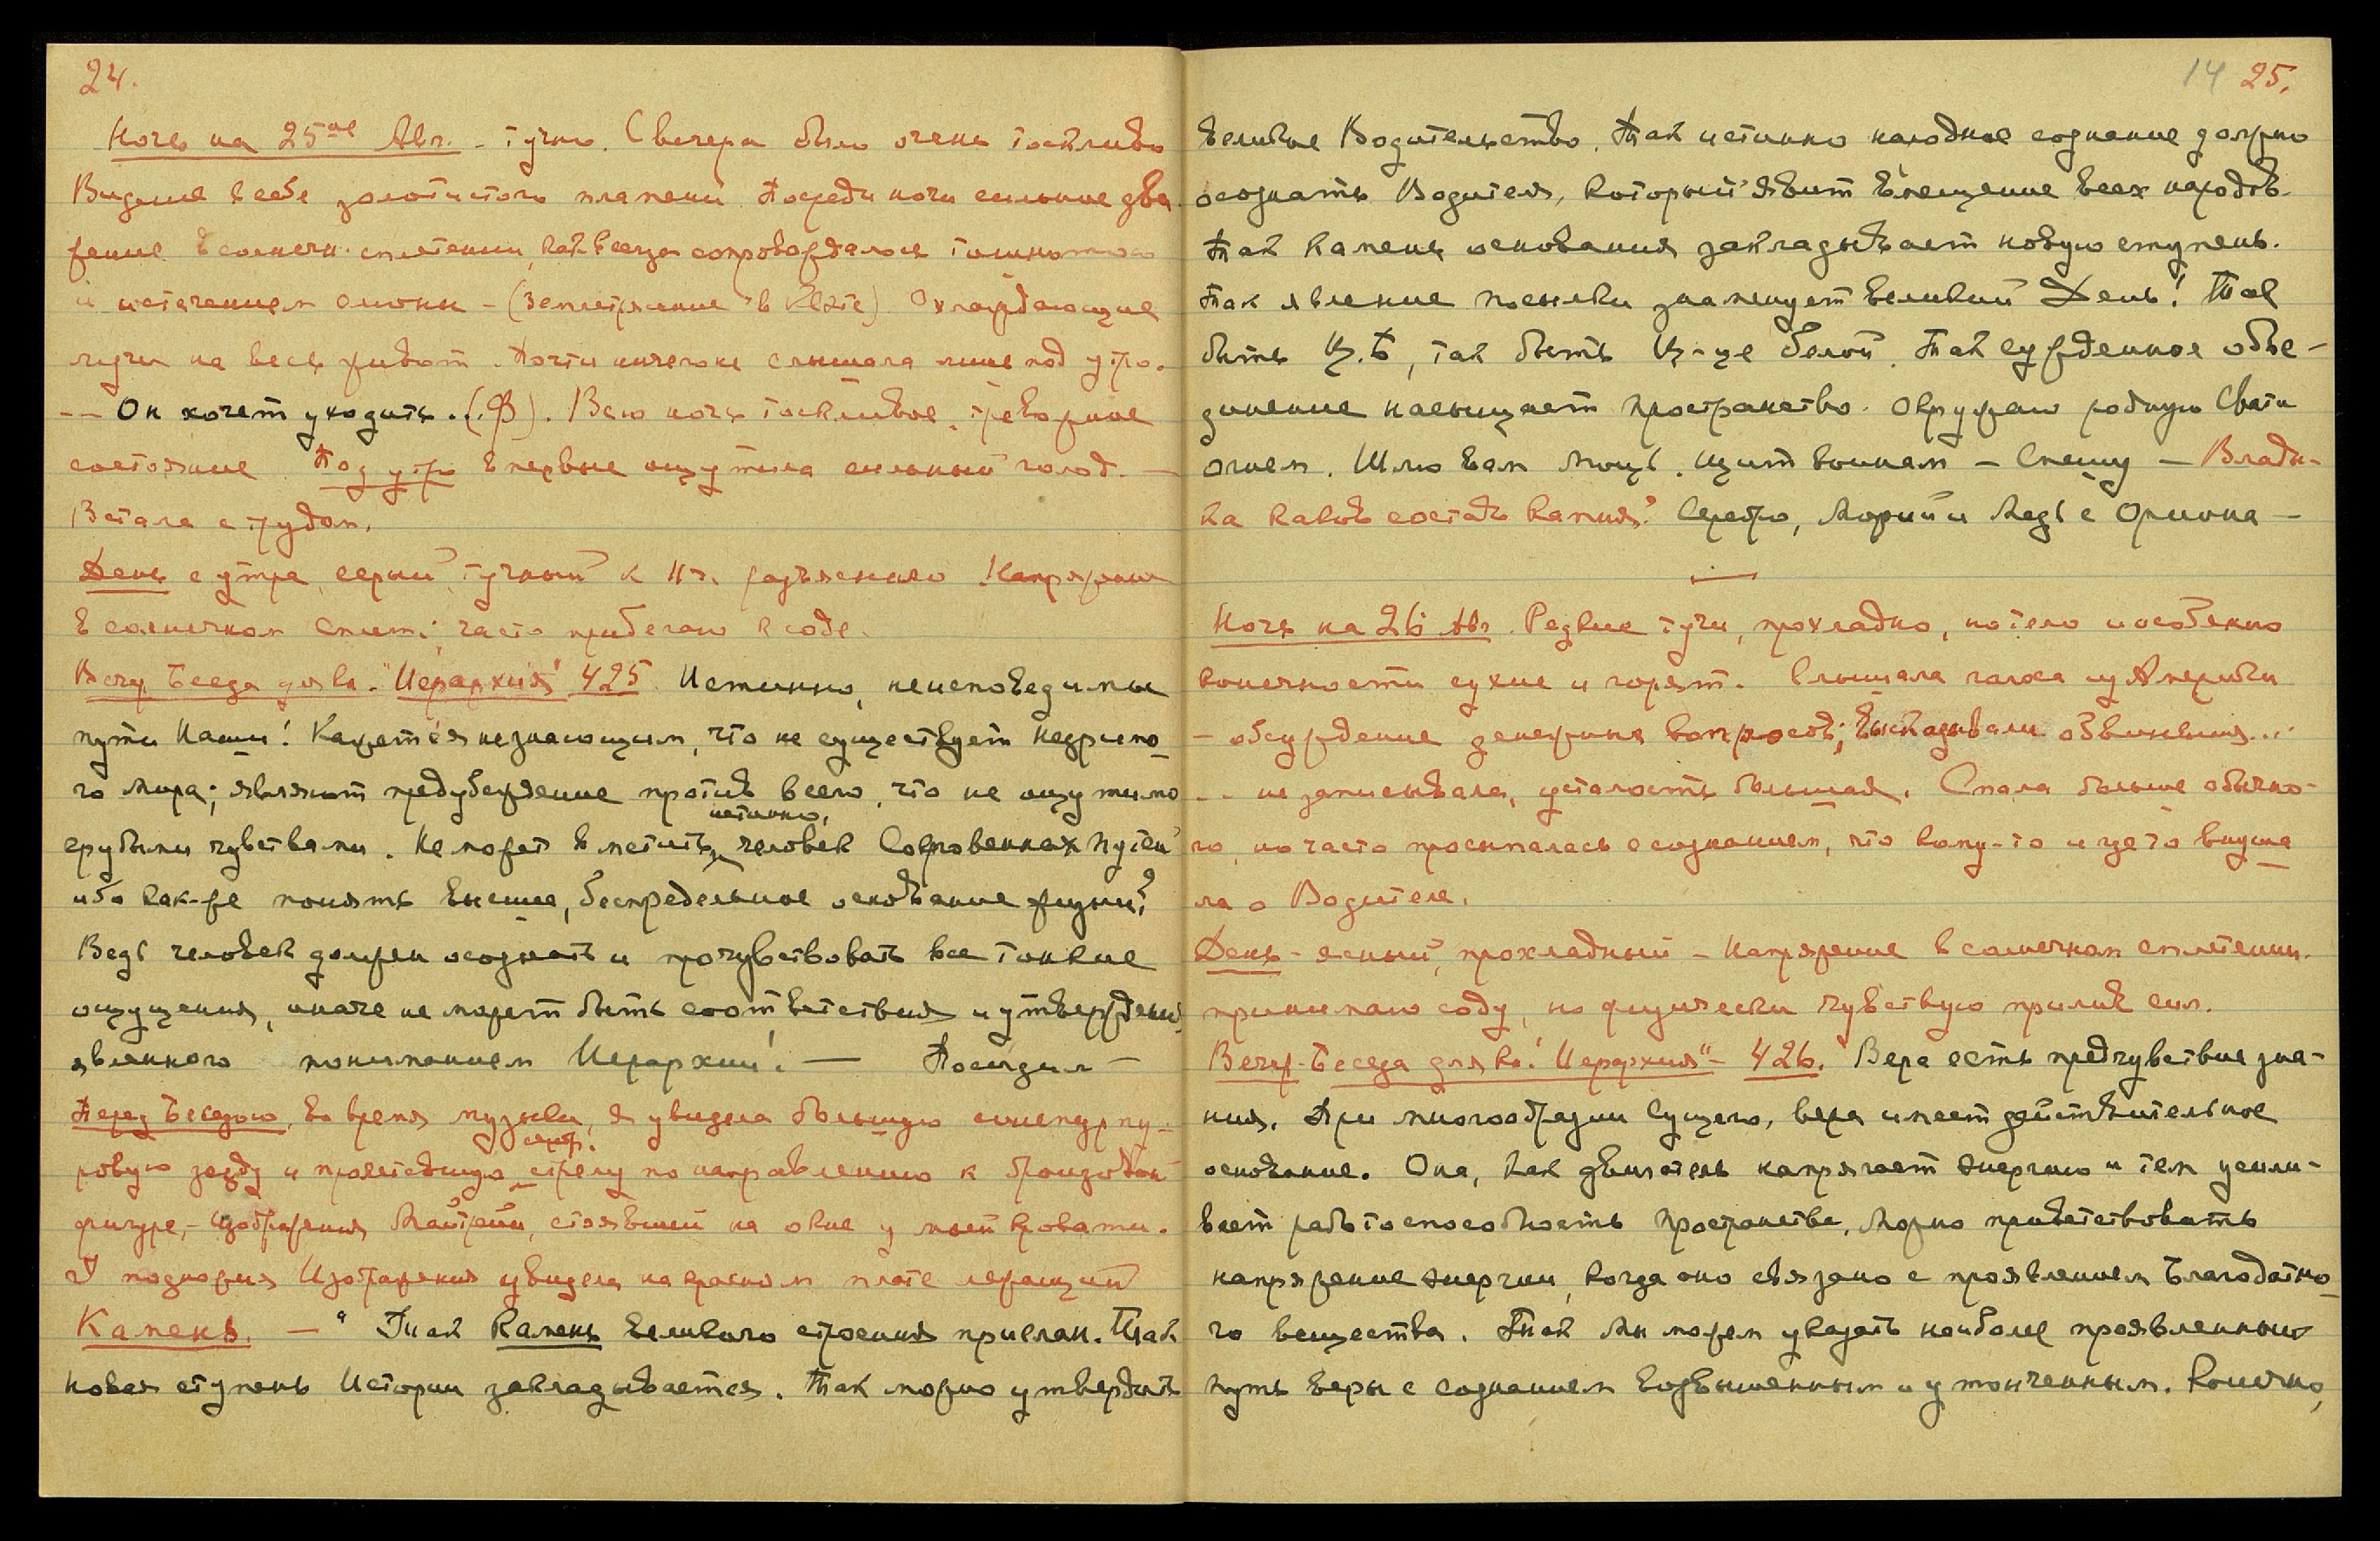 24.
Ночь на 25ое Авг. - Тучно. С вечера было очень тоскливо
Видение в себе золотистого пламени. Посреди ночи сильное дви
жение в солнечн. сплетении, как всегда сопровождалося тошнотою
и истечением слюны - (Землетрясение в Кветте) Охлаждающие
лучи на весь живот. Почти ничего не слышала лишь под утро.
-- Он хочет уходить..(.Ф). Всю ночь тоскливое, тревожное
состояние Под утро впервые ощутила сильный голод. —
Встала с трудом.
День с утра, серый, тучный к 11 ч. разъяснило. Напряжение
в солнечном сплет; часто прибегаю к соде.
Вечер Беседа для кн. "Иерархия" 425 Истинно, неисповедимы
пути Наши! Кажется незнающим, что не существует Незримо
го Мира; являют предубеждение против всего, что не ощутимо
истинно,
грубыми чувствами. Не может вместить человек Сокровенных Путей
ибо как-же понять высшее, беспредельное основание жизни?
Ведь человек должен осознать и прочувствовать все тонкие
ощущения, иначе не может быть соответствия и утверждения
явленного пониманием Иерархии! — Поездил —
Перед Беседою, во время музыки, я увидела большую синепурпу-
серебр.
ровую звезду и пролетевшую стрелу по направлению к бронзовой
фигуре, - Изображения Майтрейи, стоявшей на окне у моей кровати.
У подножия Изображения увидела на красном плате лежащий
Камень. — " Так Камень великого строения прислан. Так
новая ступень Истории закладывается. Так можно утвердить
14 25.
великое Водительство. Так истинно народное сознание должно
осознать Водителя, который явит вмещение всех народов.
Так камень основания закладывает новую ступень.
Так явление посылки знаменует великий День! Так
быть Ц.Б, так быть Ц-це белой. Так сужденное объе-
динение насыщает пространство. Окружаю родную Свати
огнем. Шлю вам мощь. Щит воинам - Спешу - Влады-
ка каков состав камня? Серебро, Морий и Медь с Ориона -
Ночь на 26 Авг. Редкие тучи, прохладно, но тело и особенно
конечности сухие и горят. Слышала голоса из Америки
- обсуждение денежных вопросов; высказывали обвинения...
-- не записывала, усталость большая. Спала больше обычно-
го, но часто просыпалась с сознанием, что кому-то и где то внуша
ла о Водителе.
День - ясный, прохладный - Напряжение в солнечном сплетении.
принимаю соду, но физически чувствую прилив сил.
Вечер - Беседа для кн. "Иерархия" - 426. Вера есть предчувствие зна-
ния. При многообразии Сущего, вера имеет действительное
основание. Она, как двигатель напрягает энергию и тем усили-
вает работоспособность Пространства. Можно приветствовать
напряжение энергии, когда оно связано с проявлением Благодатно
го вещества. Так Мы можем указать наиболее проявленный
путь веры с сознанием возвышенным и утонченным. Конечно,